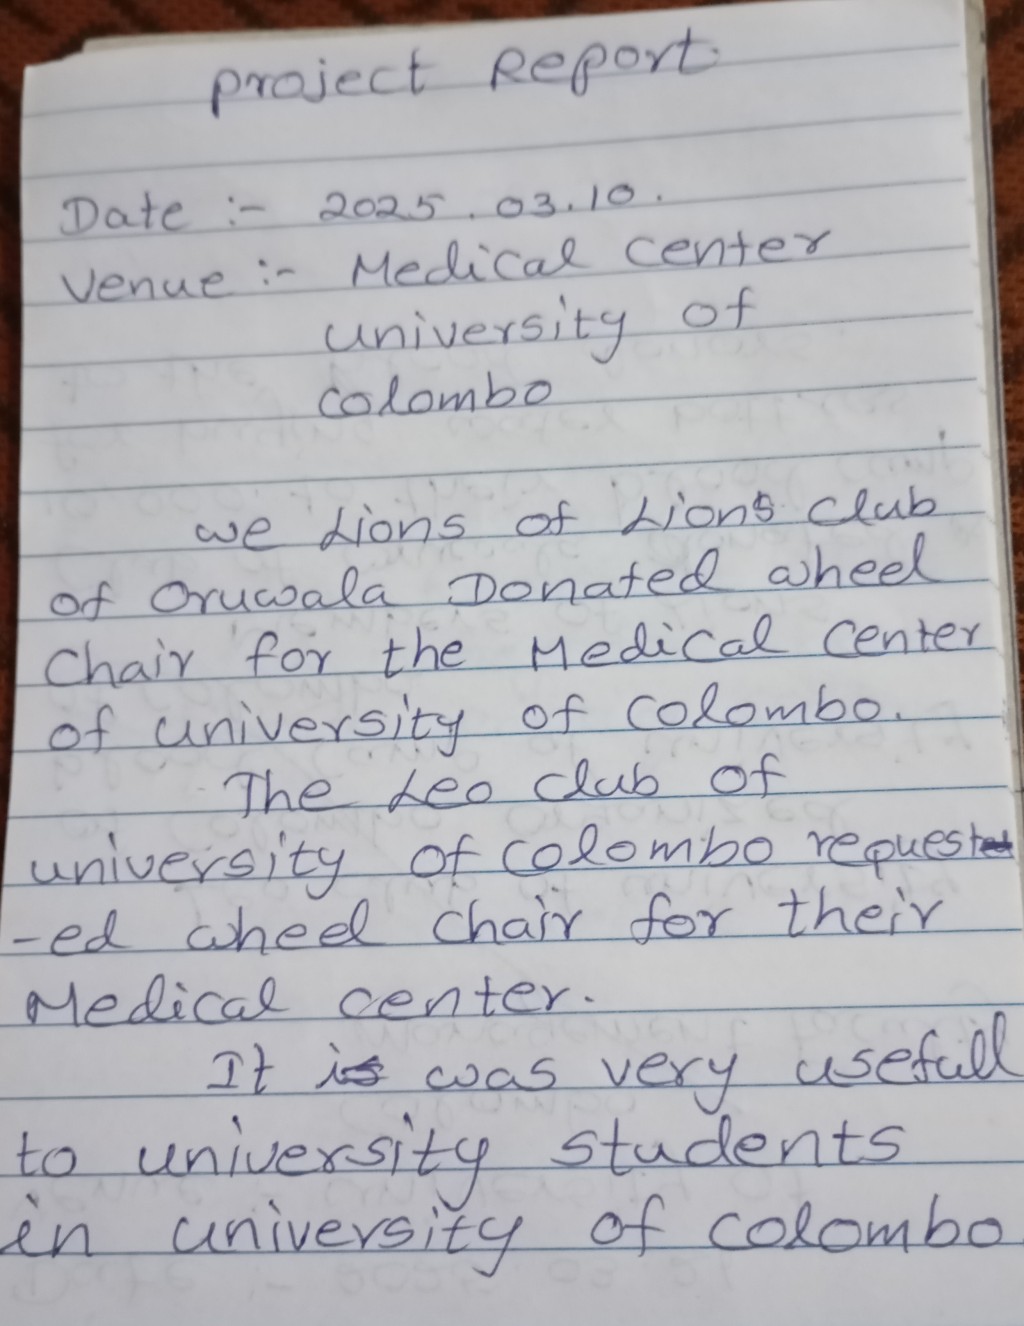 Project Report.
Date :- 2025.03.10.
Venue :- Medical Center
university of
colombo
we Lions of Lions club
of Oruwala Donated wheel
Chair for the Medical Center
of university of colombo.
The Leo club of
university of colombo request
-ed wheel chair for their
Medical center.
It is was very usefull
to university students
in university of colombo